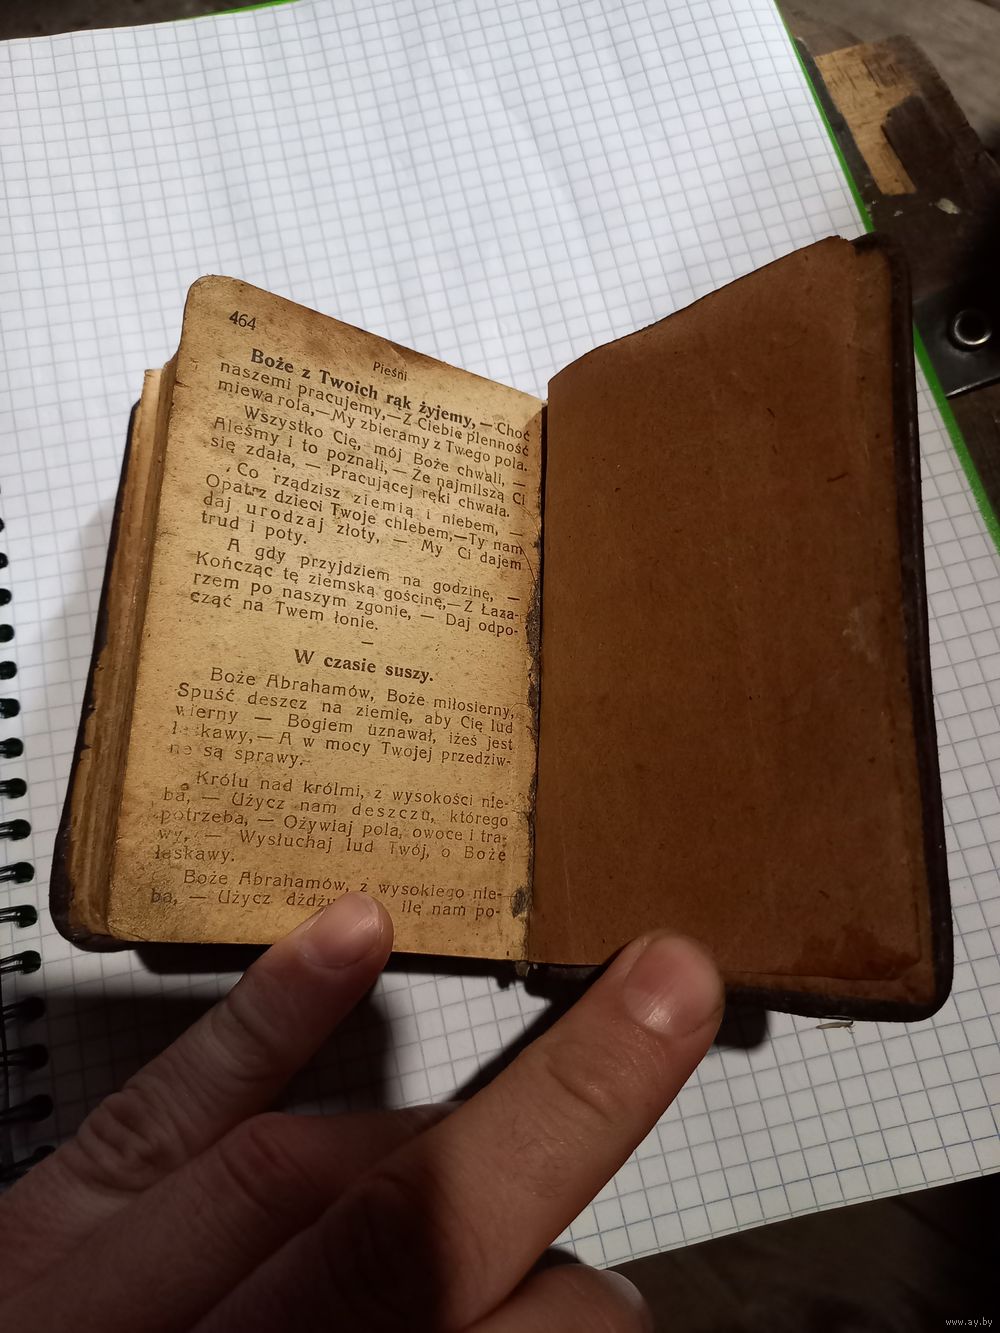 464
Pieśni
Boże z Twoich rąk żyjemy, — Choć
naszemi pracujemy,—Z Ciebie plenność
miewa rola,—My zbieramy z Twego pola.
Wszystko Cię, mój Boże chwali, —
Aleśmy i to poznali, — Że najmilszą Ci
się zdała, — Pracującej ręki chwała.
Co rządzisz ziemią i niebem, —
Opatrz dzieci Twoje chlebem,—Ty nam
daj urodzaj złoty, — My Ci dajem
trud i poty.
A gdy przyjdziem na godzinę, —
Kończąc tę ziemską gościnę,—Z Łaza-
rzem po naszym zgonie, — Daj odpo-
cząć na Twem łonie.
—
W czasie suszy.
Boże Abrahamów, Boże miłosierny,
Spuść deszcz na ziemię, aby Cię lud
wierny — Bogiem uznawał, iżeś jest
łaskawy,—A w mocy Twojej przedziw-
ne są sprawy.-
Królu nad królmi, z wysokości nie-
ba, — Użycz nam deszczu, którego
potrzeba, — Ożywiaj pola, owoce i tra-
wy, — Wysłuchaj lud Twój, o Boże
łaskawy.
Boże Abrahamów, z wysokiego nie-
ba, — Użycz ilę nam po-
www.ay.by